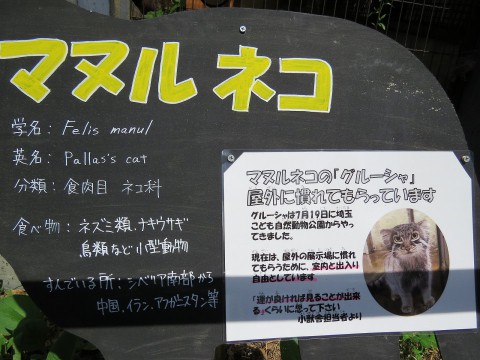 マヌルネコ
学名：Felis manul
英名：Pallas's cat
分類：食肉目 ネコ科
食べ物：ネズミ類、ナキウサギ
鳥類など小型動物
すんでいる所：シベリア南部から
中国、イラン、アフガニスタン等
マヌルネコの「グルーシャ」
屋外に慣れてもらっています
グルーシャは7月19日に埼玉
こども自然動物公園からやっ
てきました。
現在は、屋外の展示場に慣れ
てもらうために、室内と出入り
自由としています。
「運が良ければ見ることが出来
る」くらいに思って下さい
小獣舎担当者より